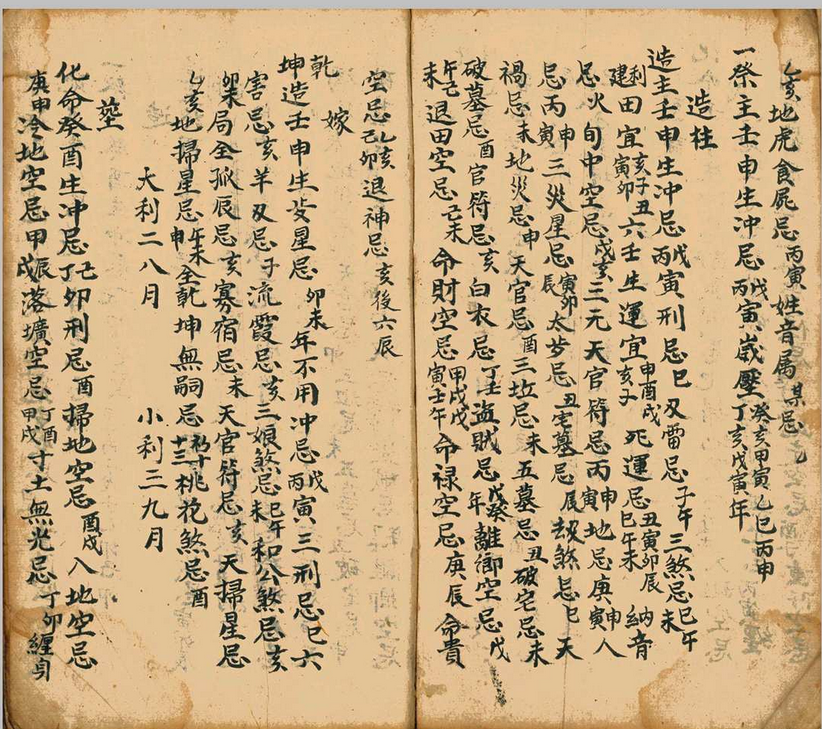 乙亥地虎食屍忌丙寅姓音属某忌
一祭主壬申生冲忌戊寅丙寅歲壓癸亥甲寅乙巳丙申丁亥戊寅年
造柱
造主壬申生冲忌戊寅丙寅刑忌巳刄雷忌子午三煞忌巳午未
利建田宜亥子丑寅卯六壬生運宜申酉戌亥子死運忌丑寅卯辰巳午未納音
忌火旬中空忌戌亥三元天官符忌丙寅丙申地忌庚寅庚申人
忌丙寅丙申三災星忌寅卯辰太歲忌丑宅墓忌辰劫煞忌巳天
禍忌未地災忌申天官忌酉三坵忌未五墓忌丑破宅忌未
破墓忌酉官符忌亥白衣忌丁壬盜賊忌戊癸年離鄉空忌戊
午未己退田空忌己未命財空忌甲戌戊寅壬午命禄空忌庚辰命貴
空忌乙亥己卯退神忌亥後六辰
嫁
乾坤造壬申生妛星忌卯未年不用冲忌戊寅丙寅三刑忌巳六
害忌亥羊刄忌子流霞忌亥三娘煞忌巳午未和公煞忌亥
卯未局全孤辰忌亥寡宿忌未天官符忌亥天掃星忌
乙亥地掃星忌午未申全乾坤無嗣忌初十十三桃花煞忌酉
大利二八月 小利三九月
塟
化命癸酉生冲忌己卯丁卯刑忌酉掃地空忌酉戌入地空忌
庚申冷地空忌甲辰戌落壙空忌丁酉甲戌寸土無光忌丁卯纏身